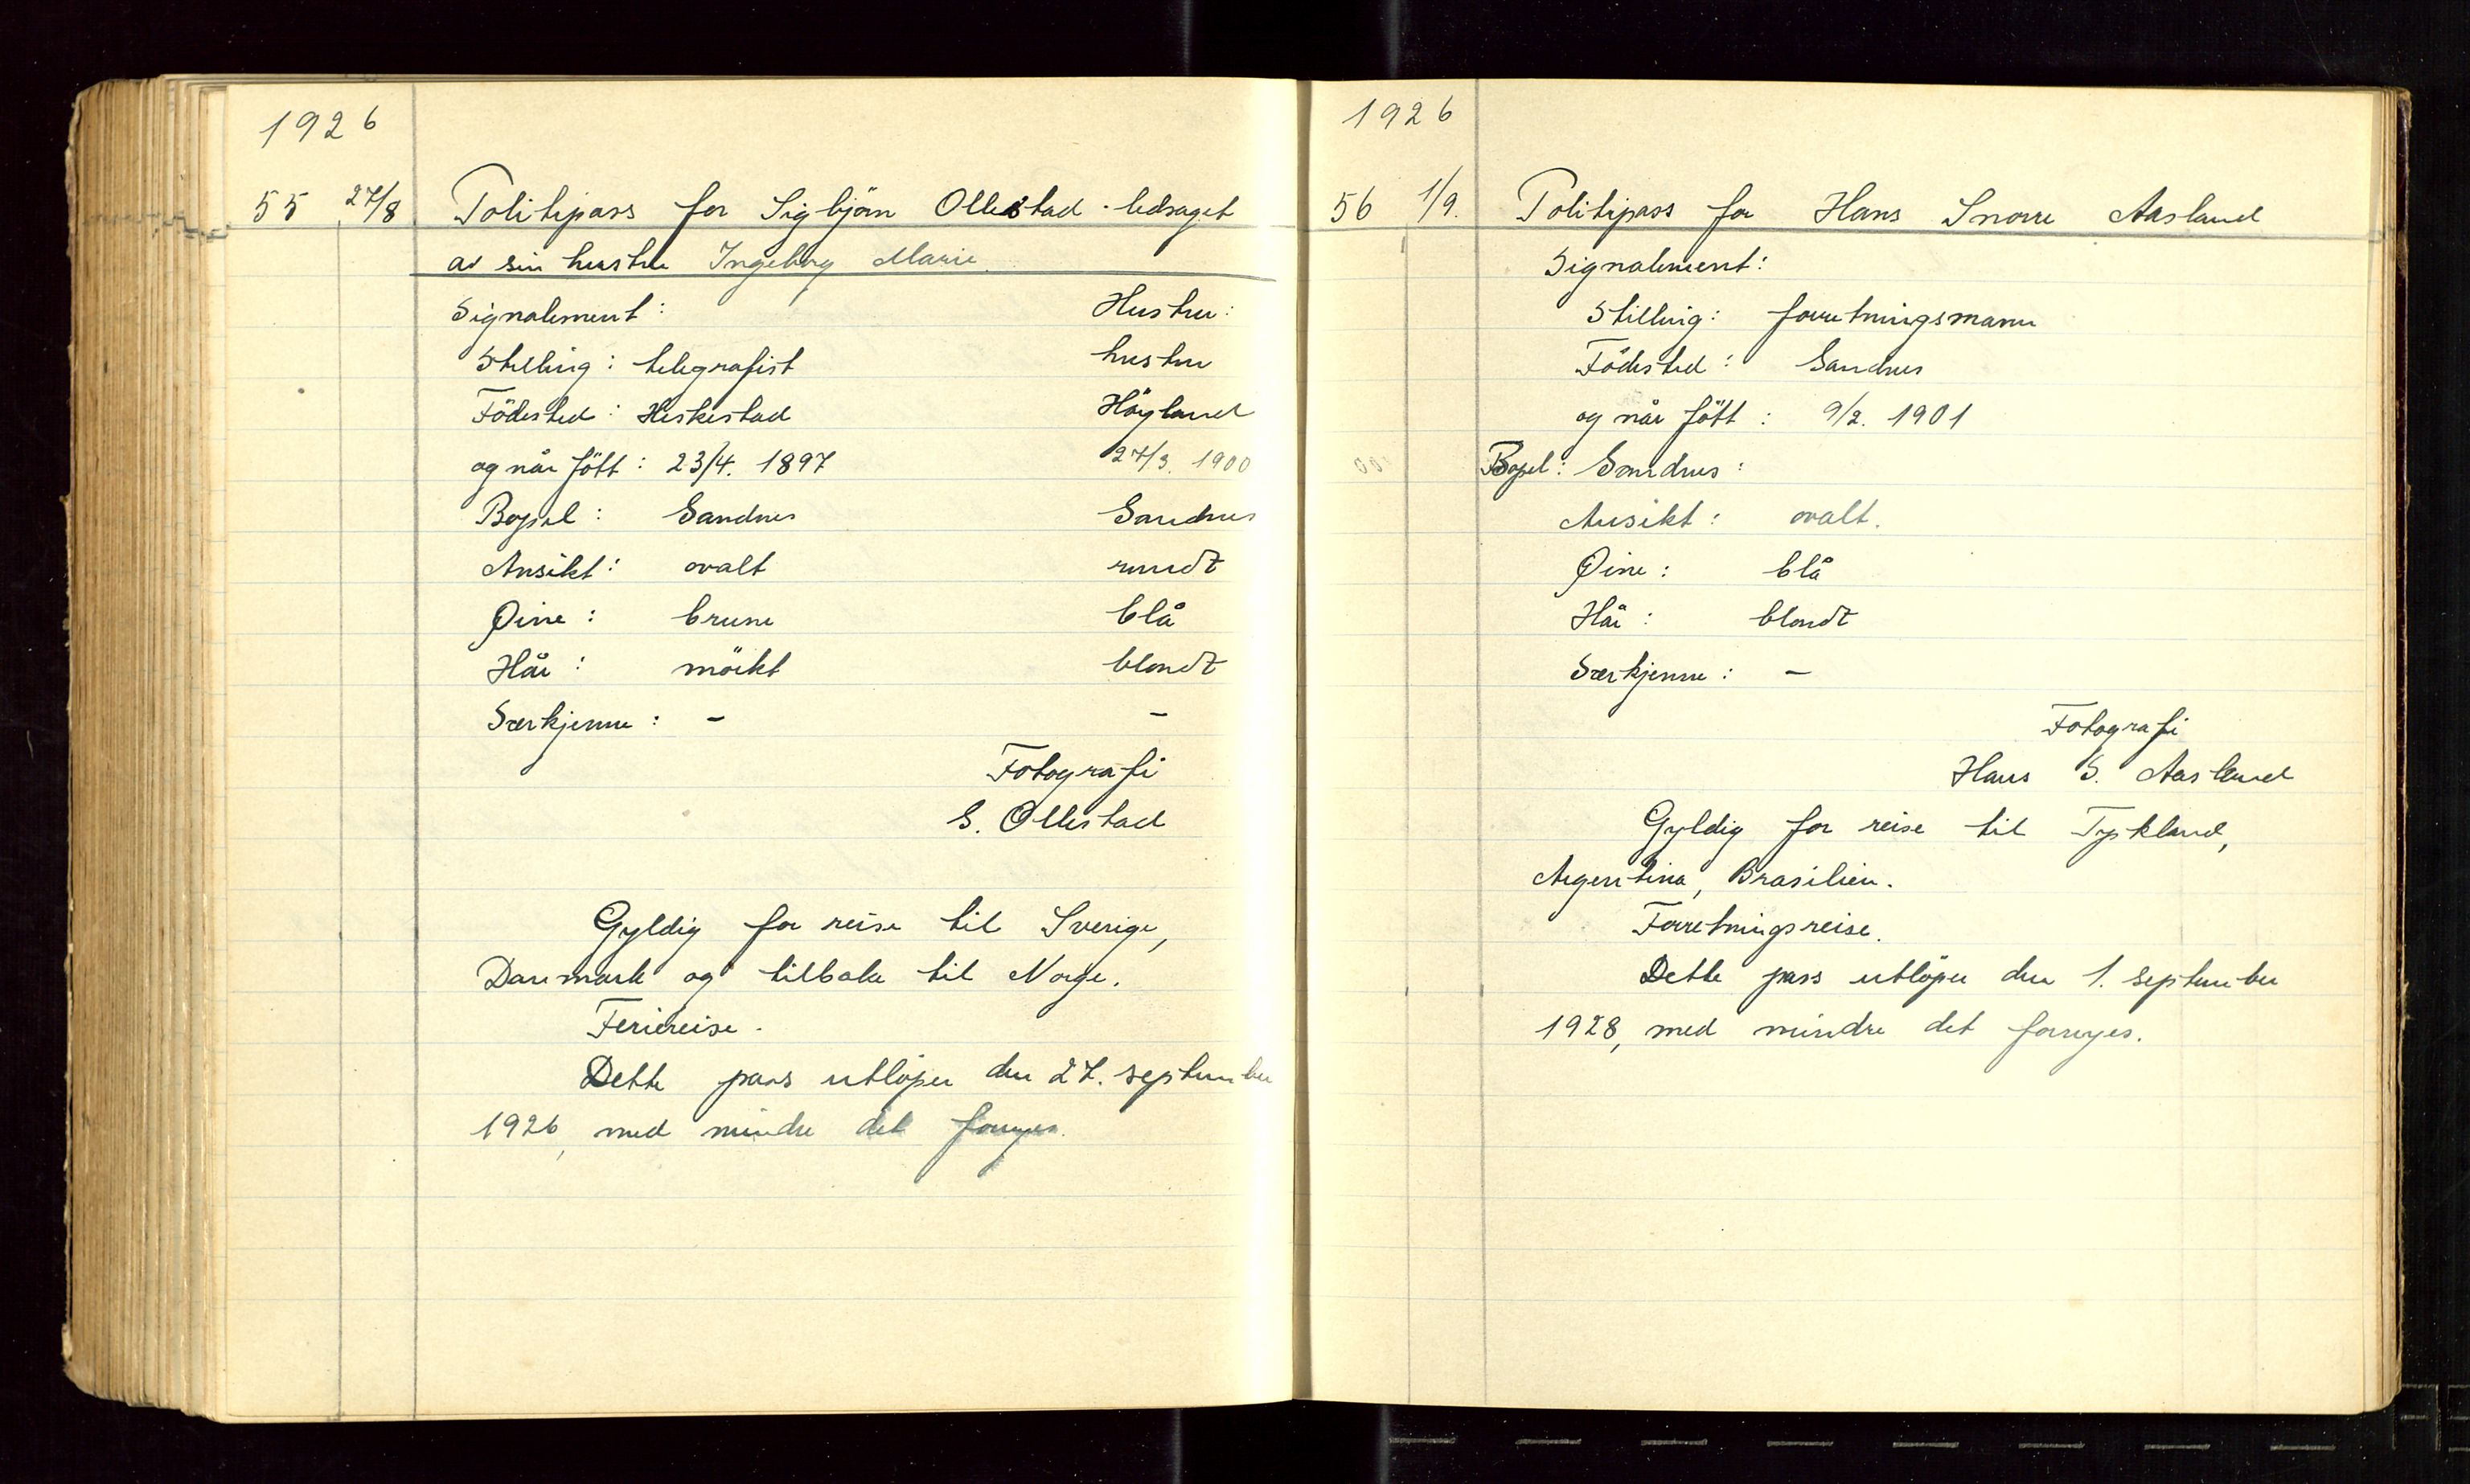 1926
55 27/8 Politipass for Sigbjörn Ollestad - ledsaget
av sin hustru Ingeborg Marie
Signalement: Hustru:
Stilling: telegrafist hustru
Födested: Heskestad Höyland
og når fött: 23/4. 1897 27/3. 1900
Bopel: Sandnes Sandnes
Ansikt: ovalt rundt
Øine: brune blå
Hår: mörkt blondt
Særkjenne: - -
Fotografi
S. Ollestad
Gyldig for reise til Sverige,
Danmark og tilbake til Norge.
Feriereise.
Dette pass utlöper den 27. september
1926, med mindre det fornyes.
1926
56 1/9. Politipass for Hans Snorre Aasland
Signalement:
Stilling: forretningsmann
Födested: Sandnes
og når fött: 9/2. 1901
Bopel: Sandnes:
Ansikt: ovalt.
Øine: blå
Hår: blondt
Særkjenne: -
Fotografi
Hans S. Aasland
Gyldig for reise til Tyskland,
Argentina, Brasilien.
Forretningsreise.
Dette pass utlöper den 1. september
1928, med mindre det fornyes.